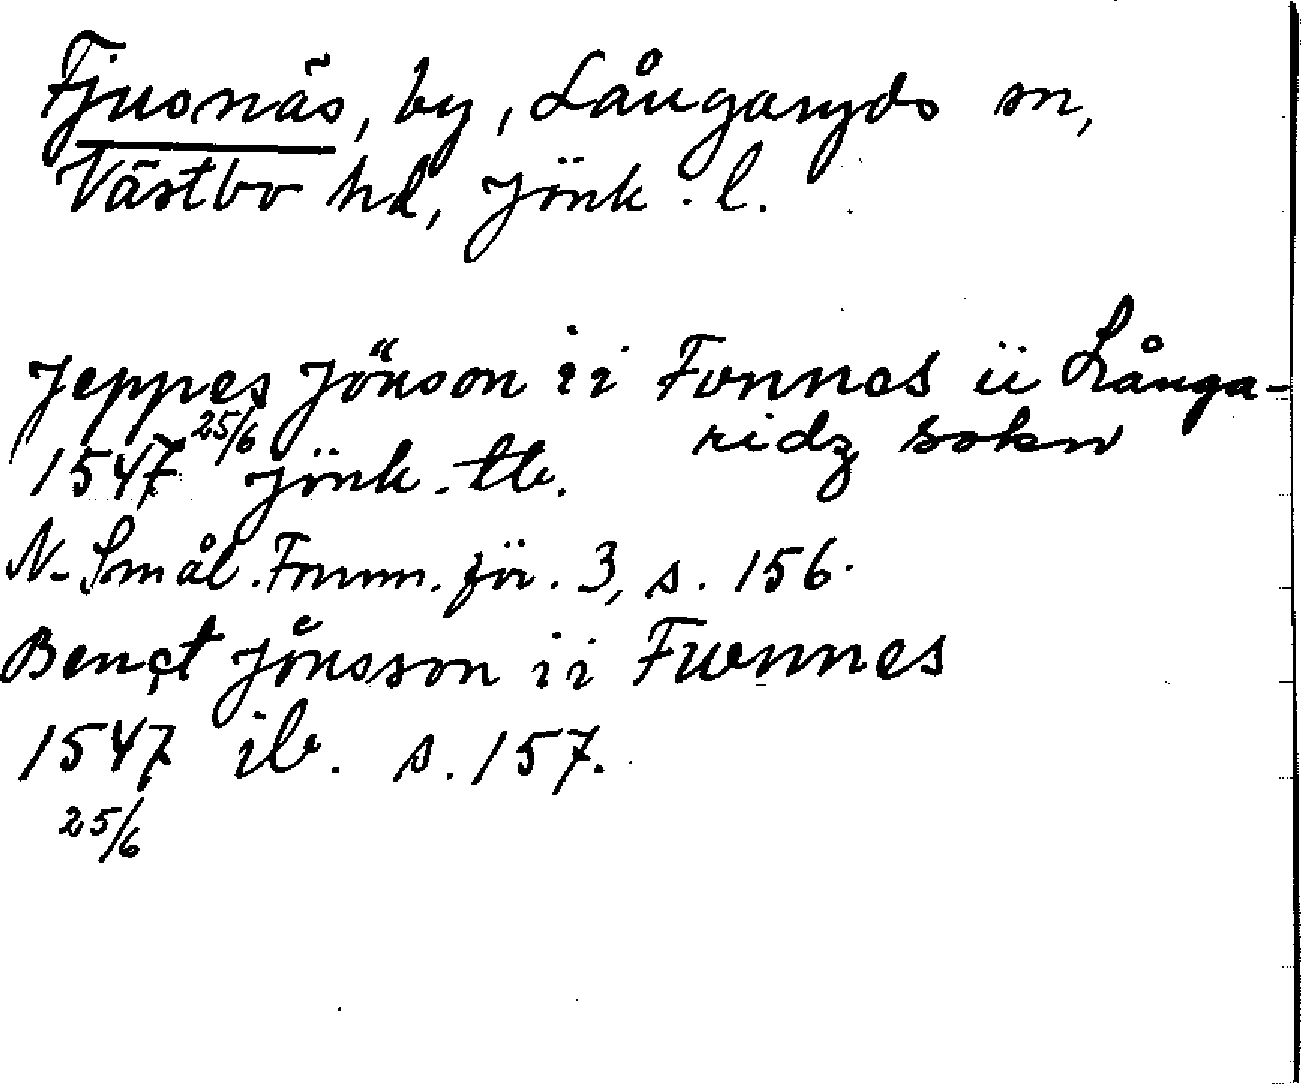 Fjusnäs, by, Långaryds sn,
Västbo hd, Jönk. l.
Jeppes Jönson ii Fonnes ii Långa-
ridz sokn
1547 25/6 Jönk. tb.
N. Smål. Fornm. för. 3, s. 156.
Bengt Jönsson ii Fuonnes
1547 ib. s. 157.
25/6